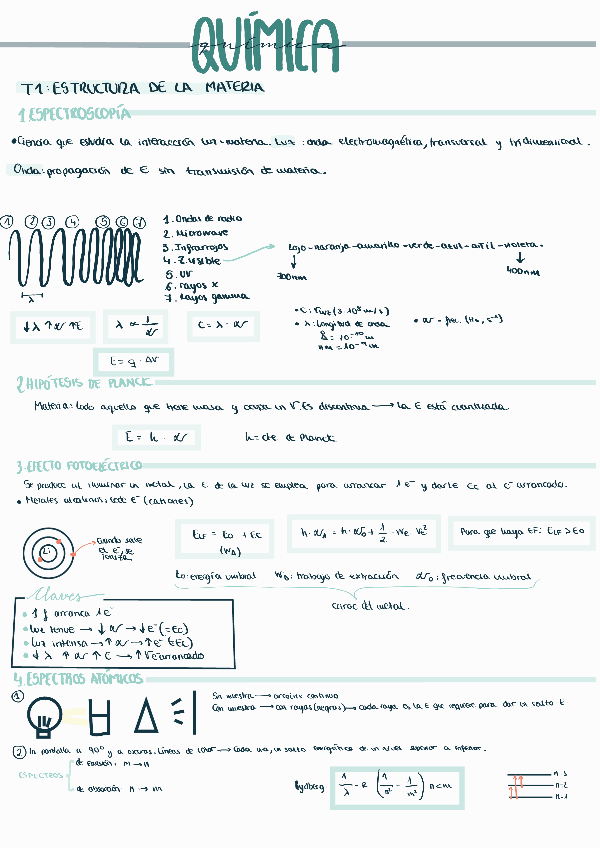 QUÍMICA
química
T1: ESTRUCTURA DE LA MATERIA
1. ESPECTROSCOPÍA
• Ciencia que estudia la interacción luz-materia. Luz: onda electromagnética, transversal y tridimensional.
Onda: propagación de E sin transmisión de materia.
① ② ③ ④ ⑤ ⑥ ⑦
λ
1. Ondas de radio
2. Microwave
3. Infrarrojos
4. Z. visible
5. UV
6. rayos x
7. Rayos gamma
rojo-naranja-amarillo-verde-azul-añil-violeta.
700nm
400nm
↓λ ↑ν ↑E
λ ∝ 1/ν
C = λ · ν
• C: vluz (3·10⁸ m/s)
• λ: longitud de onda
Å = 10⁻¹⁰ m
nm = 10⁻⁹ m
• ν = frec. (Hz, s⁻¹)
E = q · ΔV
2. HIPÓTESIS DE PLANCK
Materia: todo aquello que tiene masa y ocupa un V. Es discontinua → la E está cuantizada.
E = h · ν
h = cte de Planck
3. EFECTO FOTOELÉCTRICO
Se produce al iluminar un metal, la E de la luz se emplea para arrancar 1 e⁻ y darle Ec al e⁻ arrancado.
• Metales alcalinos: cede e⁻ (cationes)
Li
Cuando sale el e⁻, se ioniza
ELF = E0 + Ec
(W0)
h·ν = h·ν0 + 1/2 · me ve²
Para que haya EF: ELF > E0
E0: energía umbral W0: trabajo de extracción ν0: frecuencia umbral
carac del metal.
Claves
• 1 f arranca 1 e⁻
• luz tenue → ↓ν → ↓e⁻ (=Ec)
• Luz intensa → ↑ν → ↑e⁻ (=Ec)
• ↓λ ↑ν ↑E → ↑Ve⁻arrancado
4. ESPECTROS ATÓMICOS
①
Sin muestra → arcoíris continuo
Con muestra → con rayas (negras) → cada raya es la E que requiere para dar un salto E
② In pantalla a 90º y a oscuras. Líneas de color → Cada una, un salto energético de un nivel superior a inferior.
ESPECTROS
de emisión: m → n
de absorción n → m
Rydberg
1/λ = R (1/n² - 1/m²) n<m
n=3
n=2
n=1